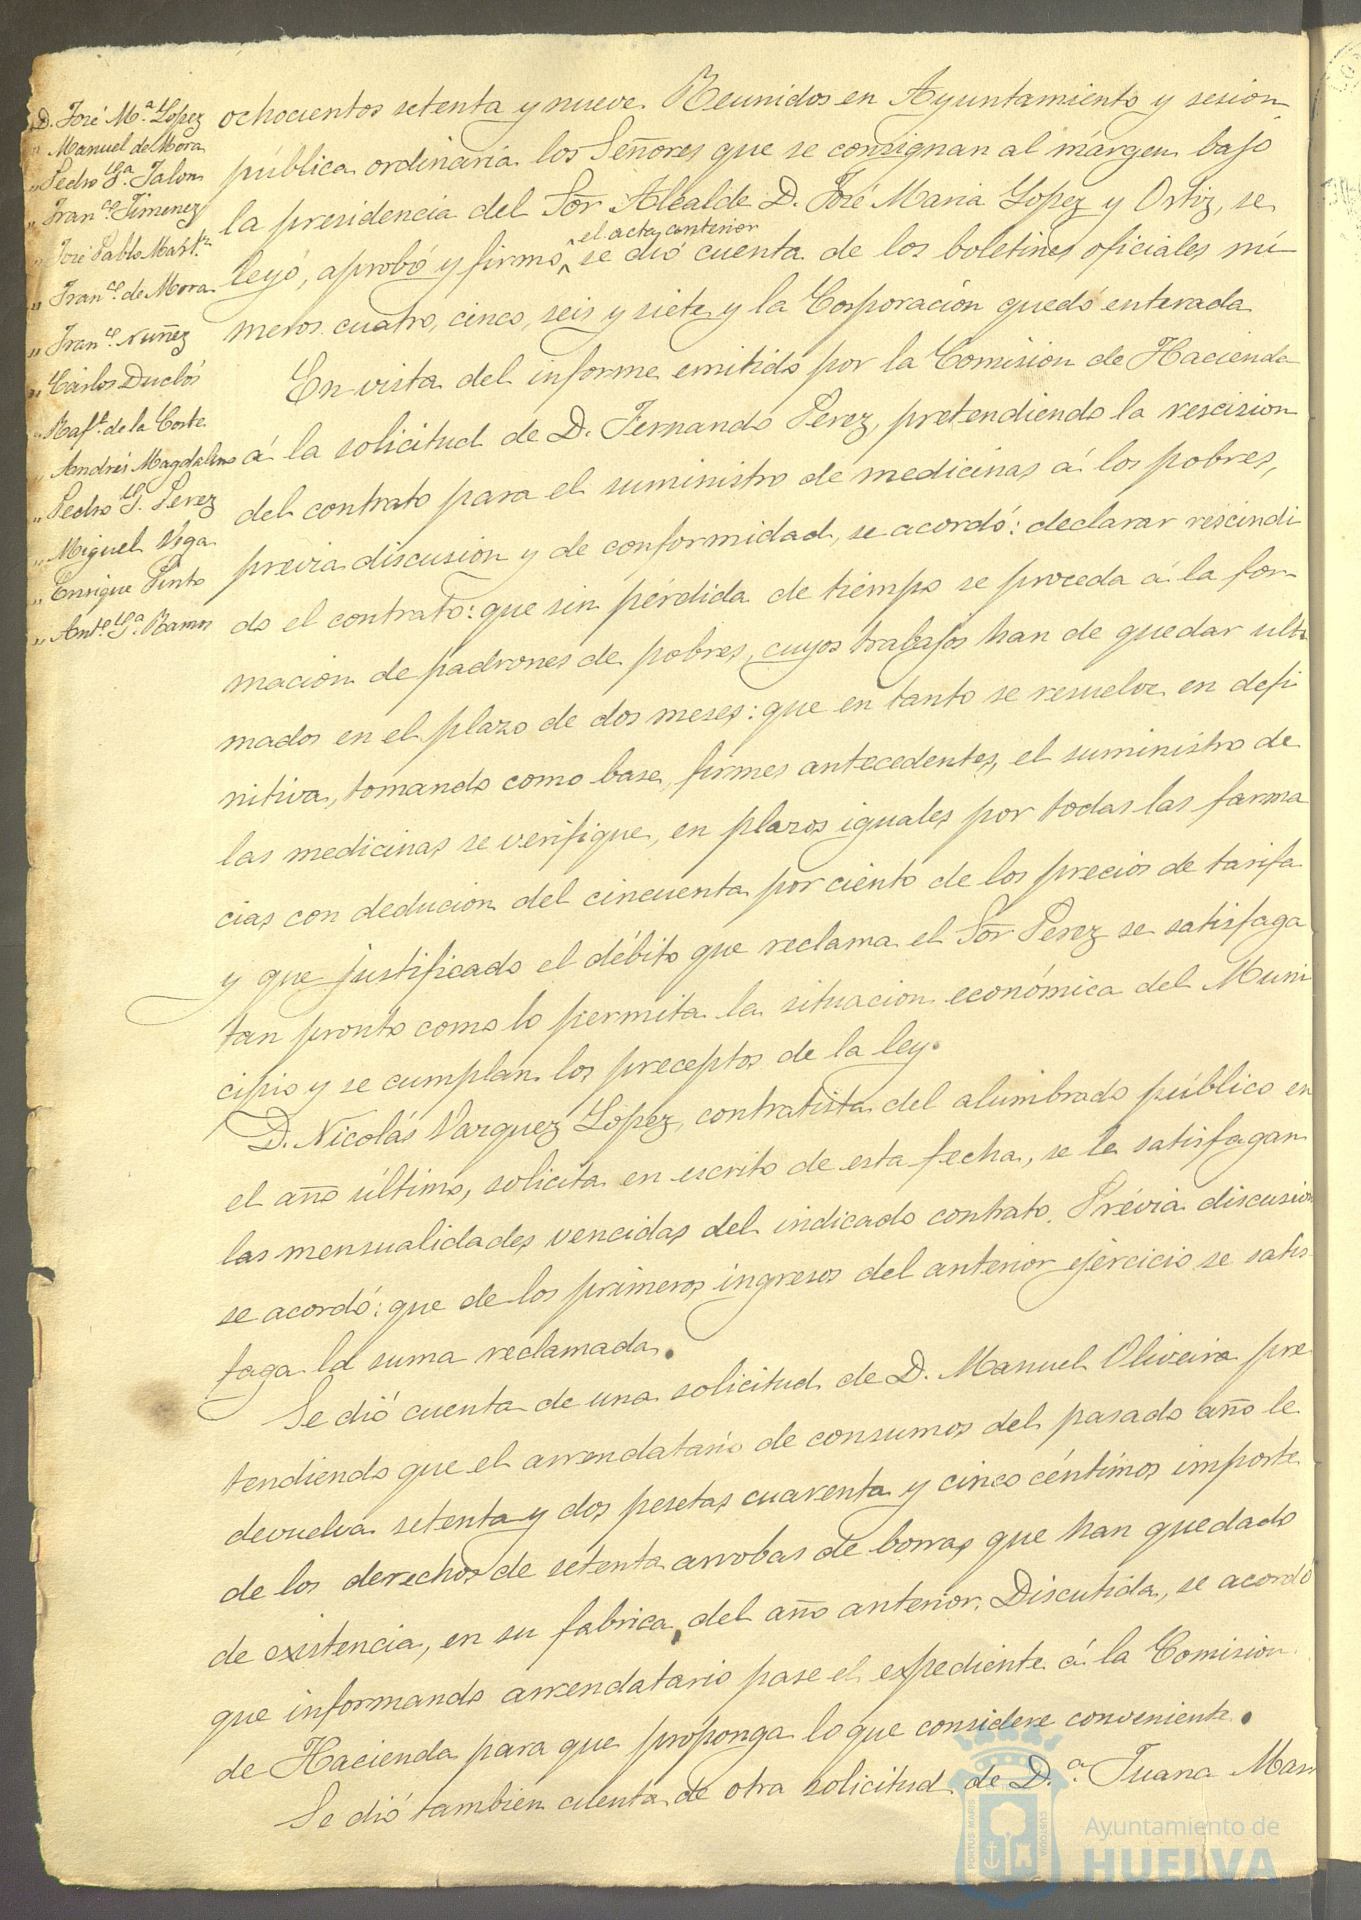 D. José M.ª López
" Manuel de Mora
" Pedro G.ª Jalon
" Fran.co Jimenez
" José Pablo Mart.z
" Fran.co de Mora
" Fran.co Nuñez
" Cárlos Duclós
" Raf.l de la Corte
" Andrés Magdaleno
" Pedro G. Perez
" Miguel Vga
" Enrique Pinto
" Ant.o G.ª Ramos
ochocientos setenta y nueve. Reunidos en Ayuntamiento y sesión
pública ordinaria los Señores que se consignan al márgen bajo
la presidencia del Sor Alcalde D. José Maria Lopez y Ortiz, se
el acta anterior
leyó, aprobó y firmó, se dió cuenta de los boletines oficiales nú
meros cuatro, cinco, seis y siete y la Corporación quedó enterada
En vista del informe emitido por la Comision de Hacienda
á la solicitud de D. Fernando Perez, pretendiendo la rescision
del contrato para el suministro de medicinas á los pobres,
previa discusion y de conformidad, se acordó: declarar rescindi
do el contrato: que sin pérdida de tiempo se proceda á la for
macion de padrones de pobres, cuyos trabajos han de quedar ulti
mados en el plazo de dos meses: que en tanto se resuelve en defi
nitiva, tomando como base, firmes antecedentes, el suministro de
las medicinas se verifique, en plazos iguales por todas las farma
cias con deducion del cincuenta por ciento de los precios de tarifa
y que justificado el débito que reclama el Sor Perez se satisfaga
tan pronto como lo permita la situacion económica del Muni
cipio y se cumplan los preceptos de la ley.
D. Nicolás Vazquez Lopez, contratista del alumbrado público en
el año último, solicita en escrito de esta fecha, se le satisfagan
las mensualidades vencidas del indicado contrato. Prévia discusion
se acordó: que de los primeros ingresos del anterior ejercicio se satis
faga la suma reclamada.
Se dió cuenta de una solicitud de D. Manuel Oliveira pre
tendiendo que el arrendatario de consumos del pasado año le
devuelva setenta y dos pesetas cuarenta y cinco céntimos importe
de los derechos de setenta arrobas de borras que han quedado
de existencia, en su fabrica, del año anterior. Discutida, se acordó
que informando arrendatario pase el expediente á la Comision
de Hacienda para que proponga lo que considere conveniente.
Se dió tambien cuenta de otra solicitud de D.ª Juana Man
PORTUS MARIS
CUSTODIA
Ayuntamiento de
HUELVA